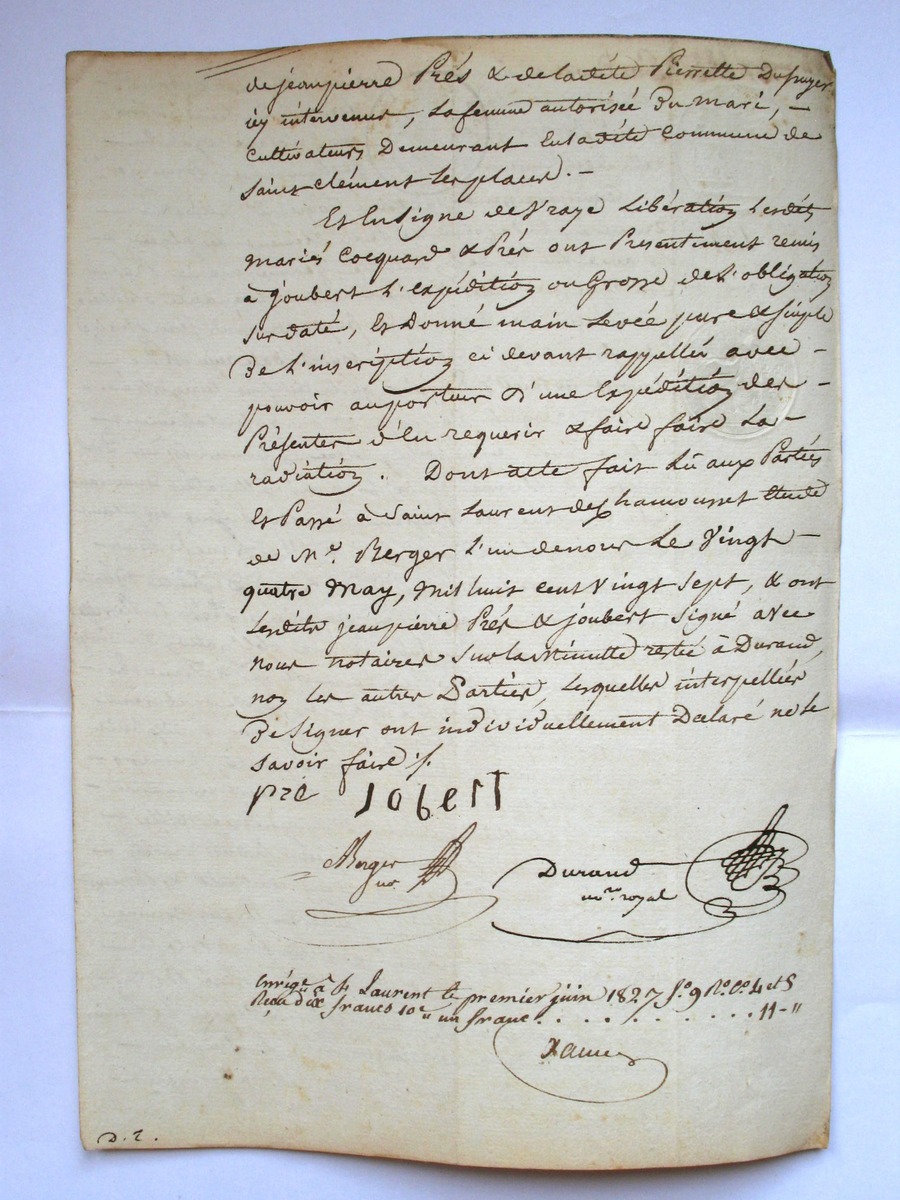 de jeanpierre Prés & de ladite Pierrette Dupuyer
icy intervenus, La femme autorisée Du mari, –
Cultivateurs Demeurant En ladite Commune de
Saint Clément Les places. –
Et En Signe de Vraye Libération Lesdits
mariés Cocquard & Prés ont Presentement remis
à Joubert L'expédition ou Grosse de L'obligation
Sus daté, Et Donné main Levée pure & Simple
De L'inscription ci devant rappellée avec –
pouvoir au porteur D'une Expédition des –
Présentes d'En requerir & faire faire La –
radiation. Dont acte fait Lû aux Parties
Et Passé à Saint Laurent de Chamousset Etude
de Me. Berger L'un de nous Le Vingt –
quatre May, mil huit cent Vingt Sept, & ont
Lesdits jeanpierre Prés & joubert Signé avec
nous notaires Sur la Minutte restée à Durand,
non les autres Parties, Lesquelles interpellées
De Signer ont individuellement Déclaré ne le
Savoir faire ./.
pré Jobert
Berger
nre
Durand
nore. royal
Enrigé. à St. Laurent le premier juin 1827 fo. 9 Ro. Co. 4 et 5
Reçu dix francs 10e un franc . . . . . . . . . . 11 – "
D. 2.